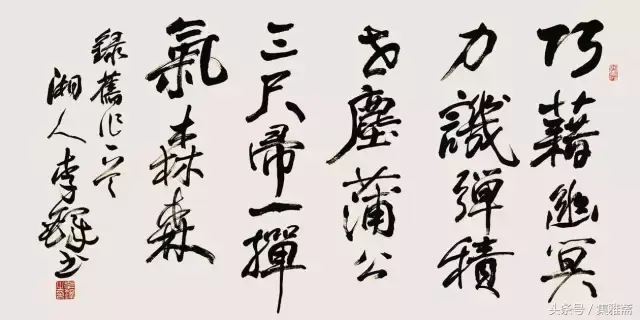 巧藉幽冥
力譏彈積
世塵蒲公
三尺帚一撣
氣森森
録舊作
湘人李鐸書
头条号 / 集雅斋